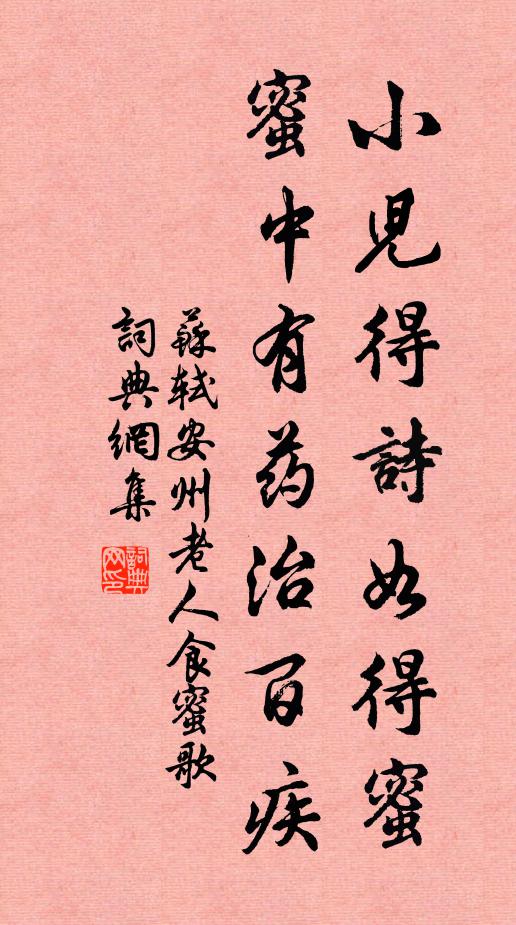 小児得詩如得蜜
蜜中有药治百疾
蘇軾安州老人食蜜歌
詞典網集
詞典网印